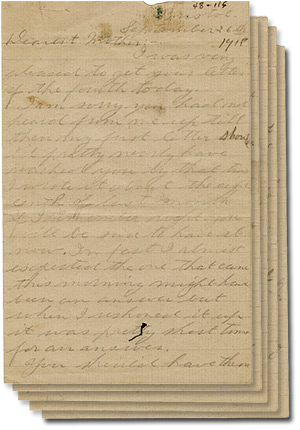 48-116
Bristol.
September 26th
1918
Dearest Mother:-
I was very
pleased to get your letter
of the fourth today.
I am sorry you had not
heard from me up till
then. My last letter should
pretty nearly have
reached you by that time
I wrote it about the
of last month
if I remember right
will be sure to have it
now. In fact I almost
expected the one that came
this morning might have
been an answer but
when I reckoned it up
it was pretty short time
for an answer.
You should have them